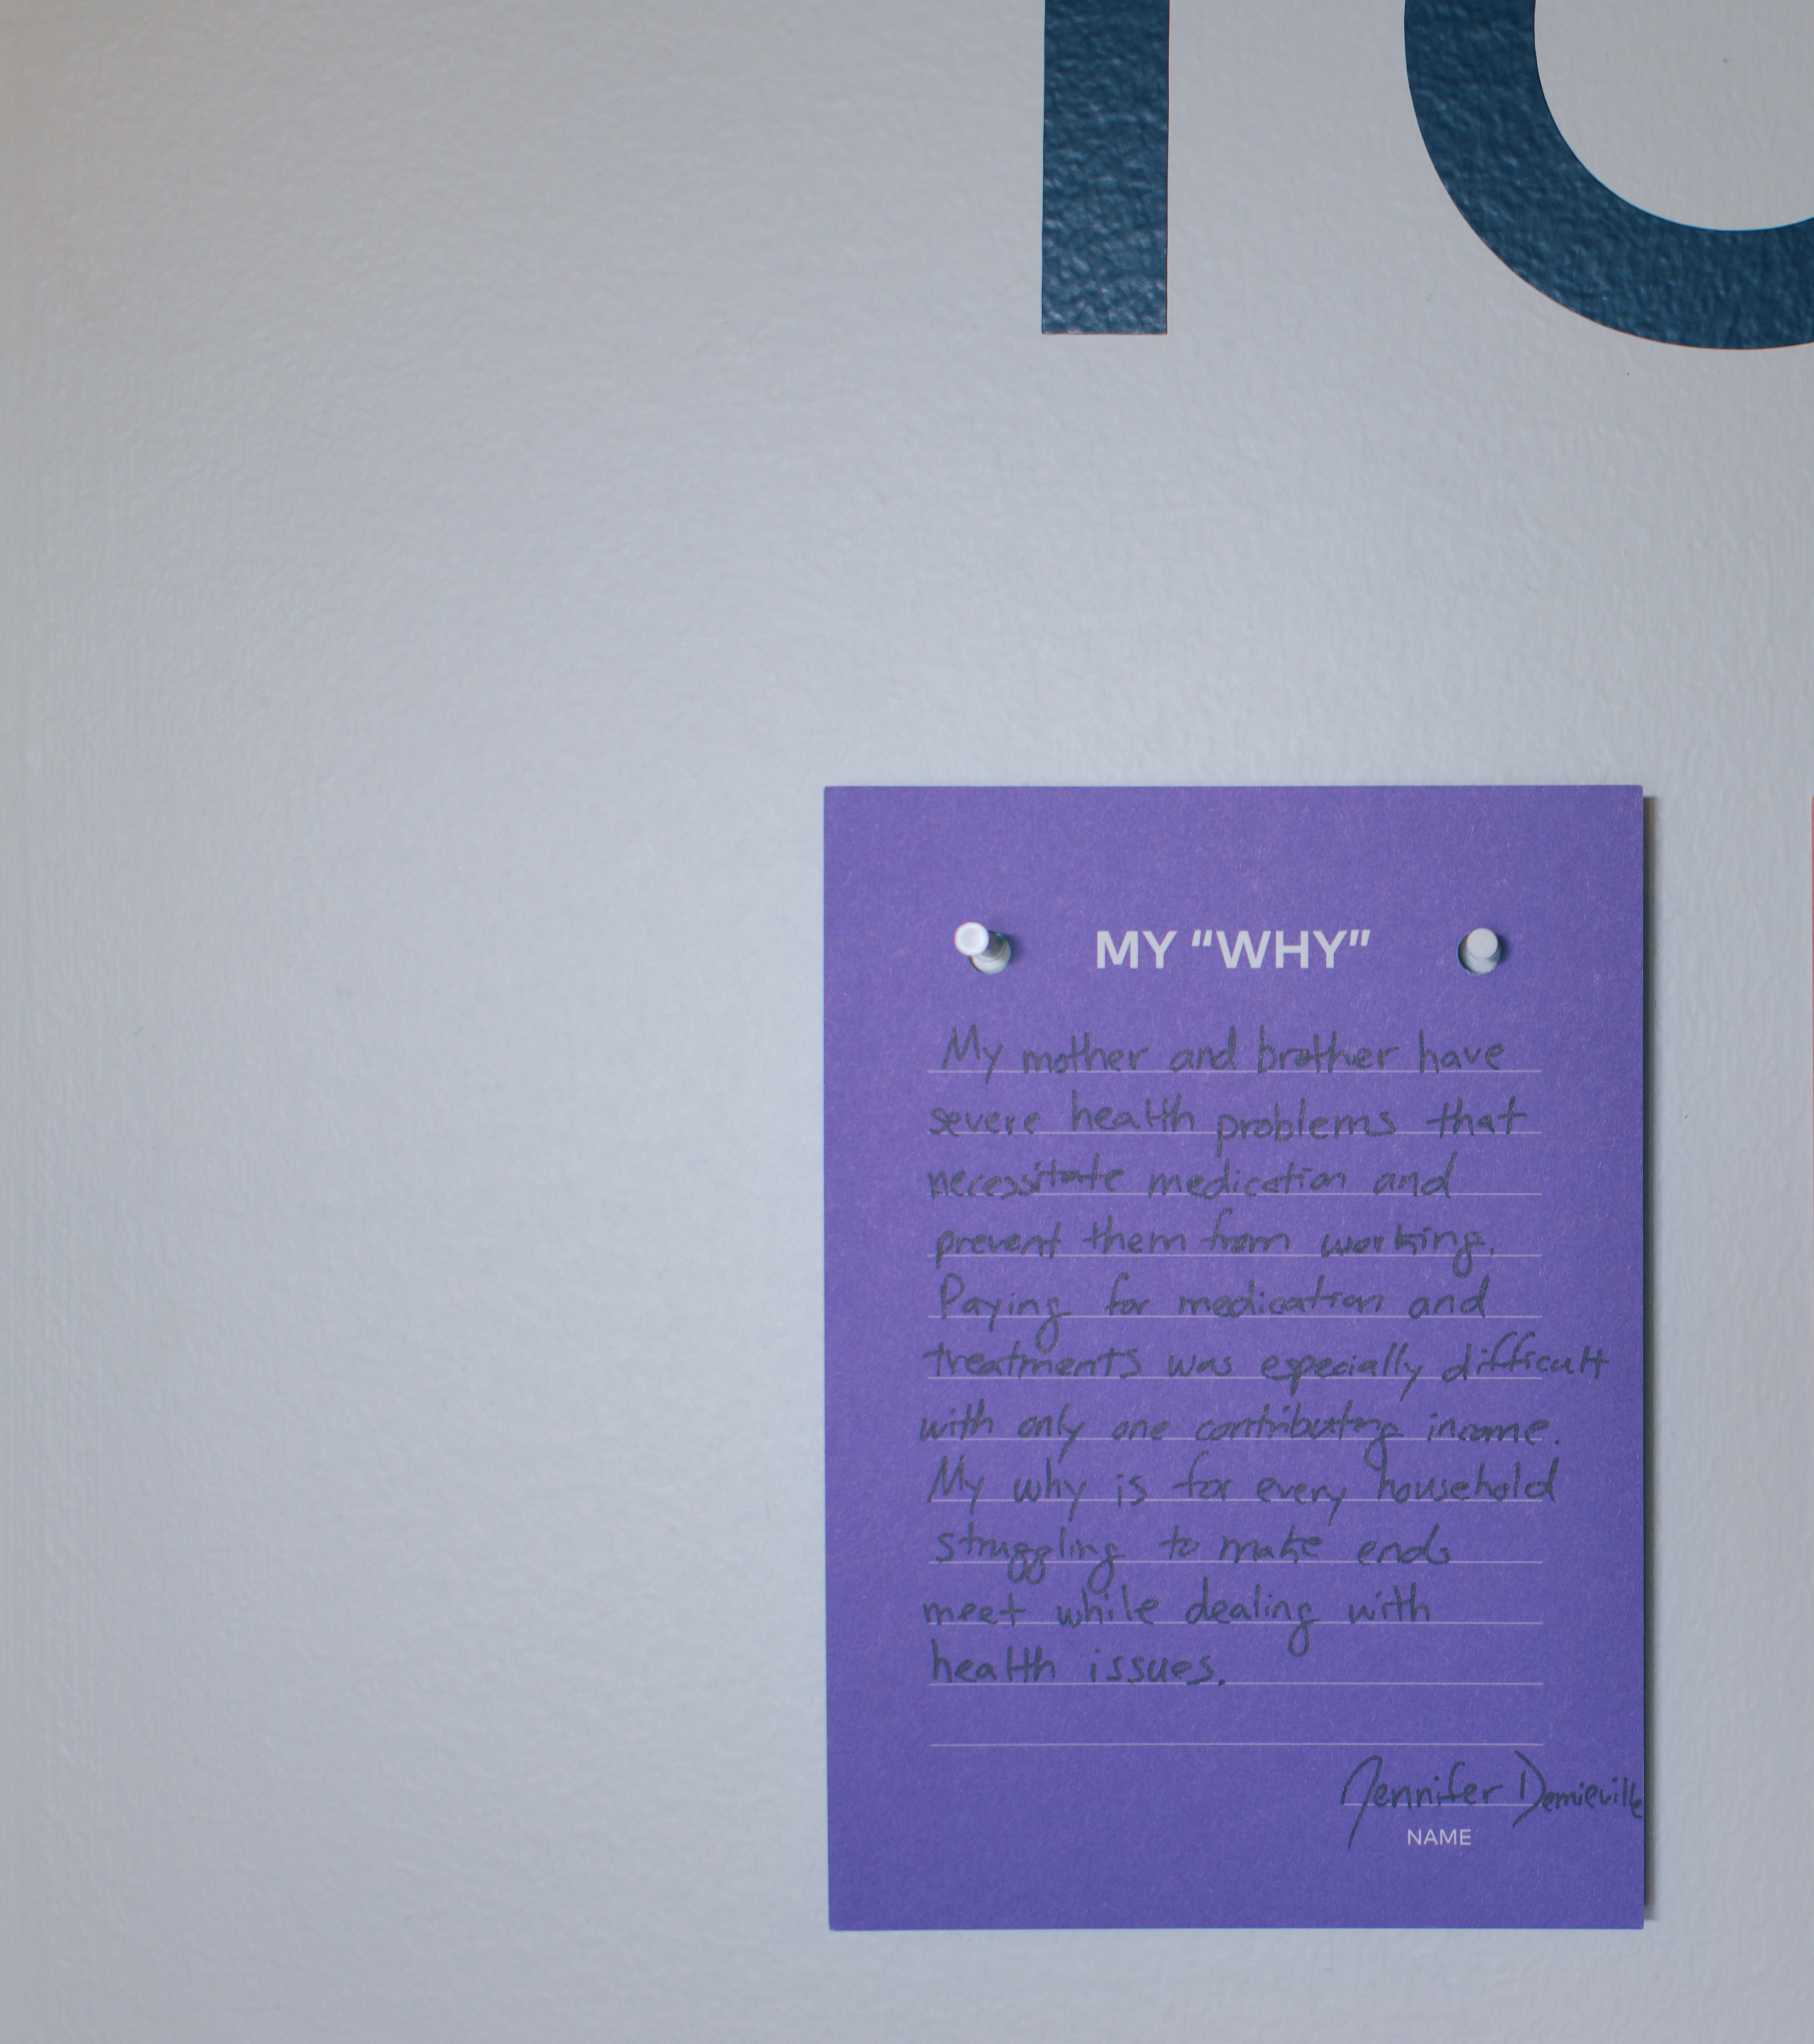 MY “WHY”
My mother and brother have
severe health problems that
necessitate medication and
prevent them from working.
Paying for medication and
treatments was especially difficult
with only one contributing income.
My why is for every household
struggling to make ends
meet while dealing with
health issues.
Jennifer Demieville
NAME